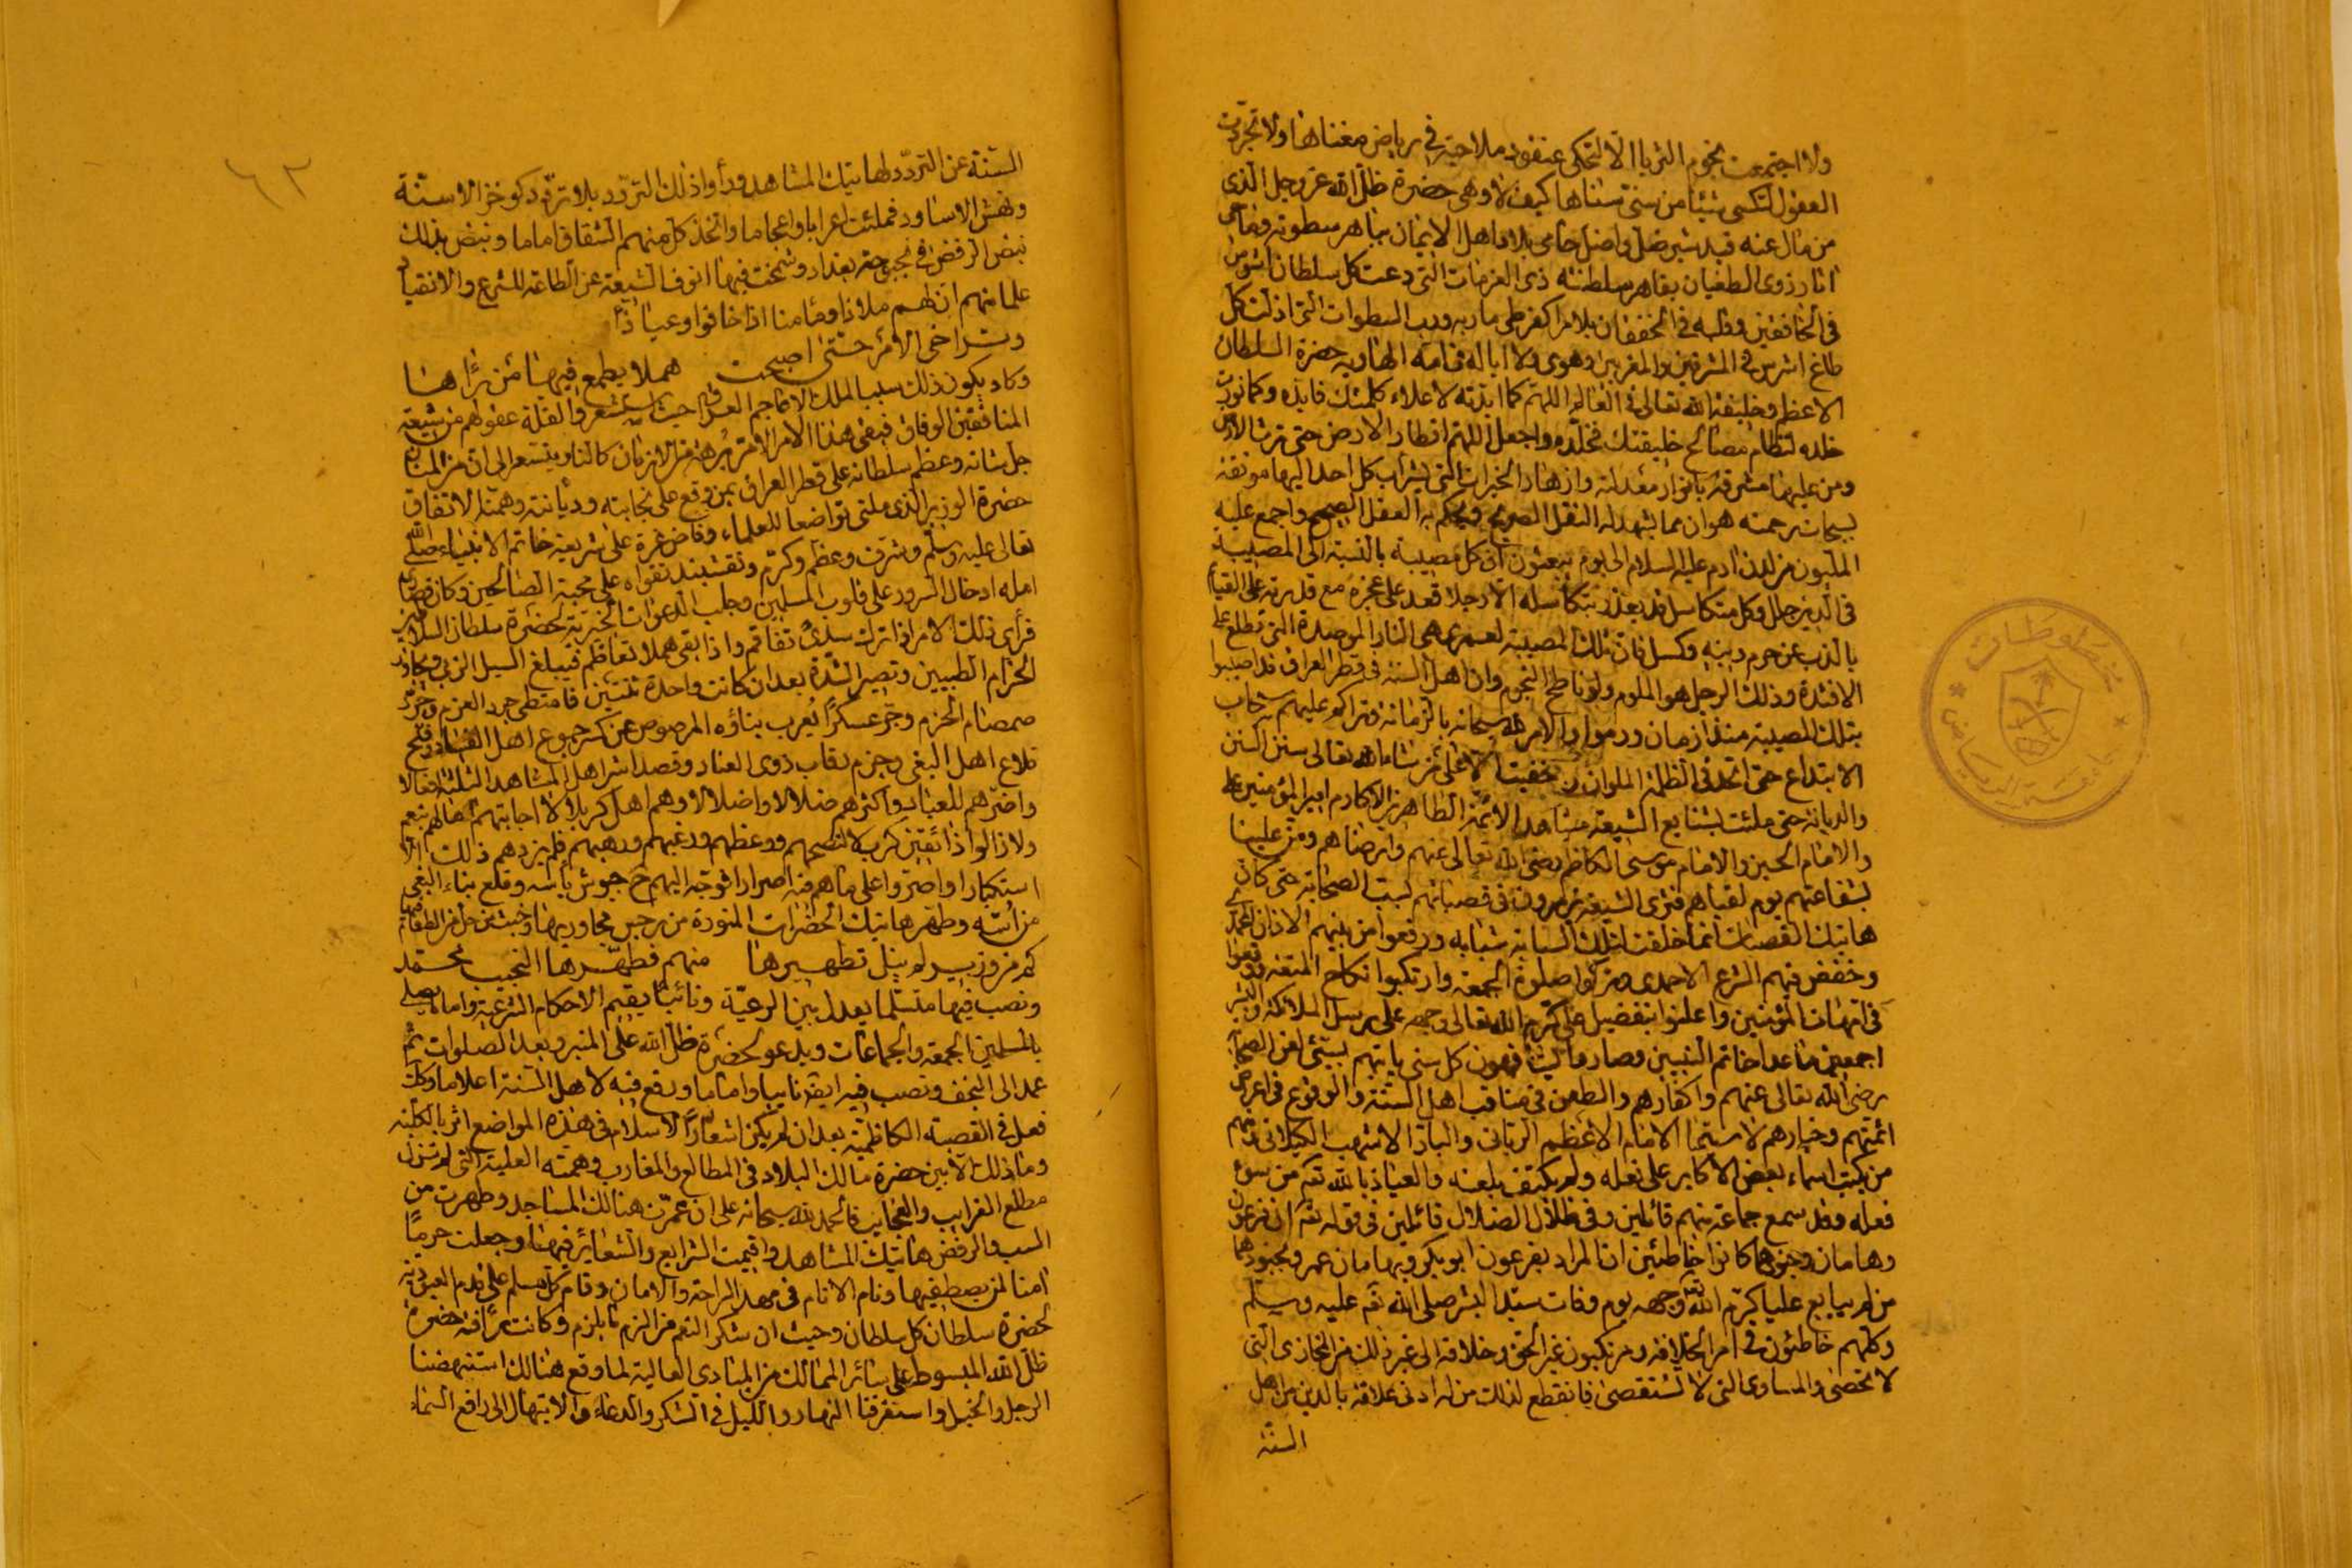 ولا اجتمعت نجوم الثريا الا لتحكي عنقود ملاحته في رياض مغناها ولا تجردت
العقول لتكسى شيئا من سنى سناها كيف لا وهي حضرة ظل الله عز وجل الذي
من مال عنه قيد شبر ضل واضل حامي بلاد اهل الايمان بباهر سطوته وماحي
اثار ذوي الطغيان بقاهر سلطنته ذي العزمات التي دعت كل سلطان اشوس
في الخافقين وقلبه في الخفقان بلا مرا كقرطي ماريه ورب السطوات التي اذلت كل
طاغ اشرس في المشرقين والمغربين وهوى ولا اباله فامه الهاويه حضرة السلطان
الاعظم وخليفة الله تعالى في العالم اللهم كما ايدته لاعلاء كلمتك فايده وكما نورت
خلده لنظام مصالح خليقتك فخلده واجعل اللهم اقطار الارض حتى ترث الارض
ومن عليها مشرقة بانوار معدلته وازهار الخيرات التي يشرأب كل احد اليها مونقة
بسحائب رحمته هو ان مما يشهد له النقل الصريح ويحكم به العقل الصحيح واجمع عليه
المليون من لدن ادم عليه السلام الى يوم يبعثون ان كل مصيبة بالنسبة الى المصيبة
في الدين جلل وكل متكاسل قد يعذر بتكاسله الا رجلا قعد على عجزه مع قدرته على القيام
بالذب عن حرم دينه وكسل فان تلك المصيبة لعمري هي النار الموصدة التي تطلع على
الافئدة وذلك الرجل هو الملوم ولو ناطح النجوم وان اهل السنة في قطر العراق قد اصيبوا
بتلك المصيبة منذ ازمان ورموا والامر لله سبحانه بالزمانة وتراكم عليهم سحاب
الابتداع حتى اتحد في الظلمة الملوان وخفيت الا على من شاء الله تعالى سنن السنن
والديانة حتى ملئت بشنايع الشيعة مشاهد الائمة الطاهرين الاكارم امير المؤمنين علي
والامام الحسين والامام موسى الكاظم رضي الله تعالى عنهم وارضاهم ومن علينا
بشفاعتهم يوم لقياهم فترى الشيعة يزمرون في قصباتهم لسب الصحابة حتى كان
هاتيك القصبات انما خلقت لتلك السبابه شبابه ورفعوا من بينهم الاذان المحمدي
وخفض فيهم الشرع الاحمدي وتركوا صلوة الجمعة وارتكبوا نكاح المتعة ووقعوا
في امهات المؤمنين واعلنوا بتفضيل علي كرم الله تعالى وجهه على رسل الملائكة والبشر
اجمعين ما عدا خاتم النبيين وصار ما يتفوهون كل سني ياتيهم بسيئ لعن الصحابة
رضي الله تعالى عنهم واكفارهم والطعن في مناقب اهل السنة والوقوع في اعراض
ائمتهم وخيارهم لا سيما الامام الاعظم الرباني والباز الاشهب الكيلاني ومنهم
من يكتب اسماء بعض الاكابر على نعله ولم يكتف بلعنه والعياذ بالله تعه من سوء
فعله وقد سمع جماعة منهم قائلين وفي ظلال الضلال قائلين في قوله تعه ان فرعون
وهامان وجنودهما كانوا خاطئين ان المراد بفرعون ابو بكر وبهامان عمر وبجنودهما
من لم يبايع عليا كرم الله تعه وجهه يوم وفات سيد البشر صلى الله تعه عليه وسلم
وكلهم خاطئون في امر الخلافة ومرتكبون غير الحق وخلافه الى غير ذلك من المخازي التي
لا تحصى والمساوي التي لا تستقصى فانقطع لذلك من له ادنى علاقة بالدين من اهل
السنة
٦٢
السنة عن التردد لهاتيك المشاهد ورأوا ذلك التردد بلا تردد كوخز الاسنة
ونهش الاساود فملئت اعرابا واعجاما واتخذ كل منهم الشقاق اماما ونبض بذلك
نبض الرفض في بحبوحة بغداد وشمخت فيها انوف الشيعة عن الطاعة للشرع والانقياد
علما منهم ان لهم ملاذا ومأمنا اذا خافوا وعياذا
وتراخى الأمر حتى اصبحت هملا يطمع فيها من يراها
وكاد يكون ذلك سببا لملك الاعاجم العراق حيث استشعروا لقلة عقولهم من شيعته
المنافقين الوفاق فبقي هذا الامر الامر برهة من الازمان كالنار يتسعر الى ان من الملك
جل شانه وعظم سلطانه على قطر العراق بمن وقع على نجابته وديانته وهمته الاتفاق
حضرة الوزير الذي ملئ تواضعا للعلماء وفاض غيرة على شريعة خاتم الانبياء صلى الله
تعالى عليه وسلم وشرف وعظم وكرم ونقشبند تقواه على محبة الصالحين وكان قصارى
امله ادخال السرور على قلوب المسلمين وجلب الدعوات الخيرية لحضرة سلطان السلاطين
فرأى ذلك الامر اذا ترك سدى تفاقم واذا بقي هملا تعاظم فيبلغ السيل الزبى ويجاوز
الحزام الطبيين وتصير الشدة بعد ان كانت واحدة ثنتين فامتطى جرد العزم وجرد
صمصام الحزم وجر عسكرا يعرب بناؤه المرصوص عن كسر جموع اهل الفساد وفتح
قلاع اهل البغي وجزم رقاب ذوي العناد وقصد اشر اهل المشاهد الثلثة افعالا
واضرهم للعباد واكثرهم ضلالا واضلالا وهم اهل كربلا لا اجابتهم امالهم بنعم
ولا زالوا ذائقين كرب لا لنصحهم ووعظهم ورغبهم ورهبهم فلم يزدهم ذلك الا
استكبارا واصروا على ما هم فيه اصرارا توجه اليهم ح جيوش بأسه وقلع بناء البغي
من أسه وطهر هاتيك الحضرات المنورة من رجس مجاوريها وخبث من حل من الطغام فيها
كم من وزير لم ينل تطهيرها منهم فطهرها النجيب محمد
ونصب فيها متسلما يعدل بين الرعية ونائبا يقيم الاحكام الشرعية واماما يصلي
بالمسلمين الجمعة والجماعات ويدعو لحضرة ظل الله على المنبر وبعد الصلوات ثم
عمد الى النجف ونصب فيه ايضا نايبا واماما ورفع فيه لاهل السنة اعلاما وكذا
فعل في القصبة الكاظمية بعد ان لم يكن اشعار لاسلام في هذه المواضع اثر بالكلية
وما ذلك الا بيمن حضرة مالك البلاد في المطالع والمغارب وهمته العلية التي لم تزل
مطلع الغرايب والعجايب فالحمد لله سبحانه على ان عمرت هنالك المساجد وطهرت من
السب والرفض هاتيك المشاهد واقيمت الشرايع والشعائر فيها وجعلت حرما
امنا لمن يصطفيها ونام الانام في مهد الراحة والامان وقام كل مسلم على قدم العبودية
لحضرة سلطان كل سلطان وحيث ان شكر النعم من الزم ما يلزم وكانت رأفة حضرة
ظل الله المبسوط على سائر الممالك من المبادي العالية لما وقع هنالك استنهضنا
الرجل والخيل واستغرقنا النهار والليل في الشكر والدعاء والابتهال الى رافع السماء